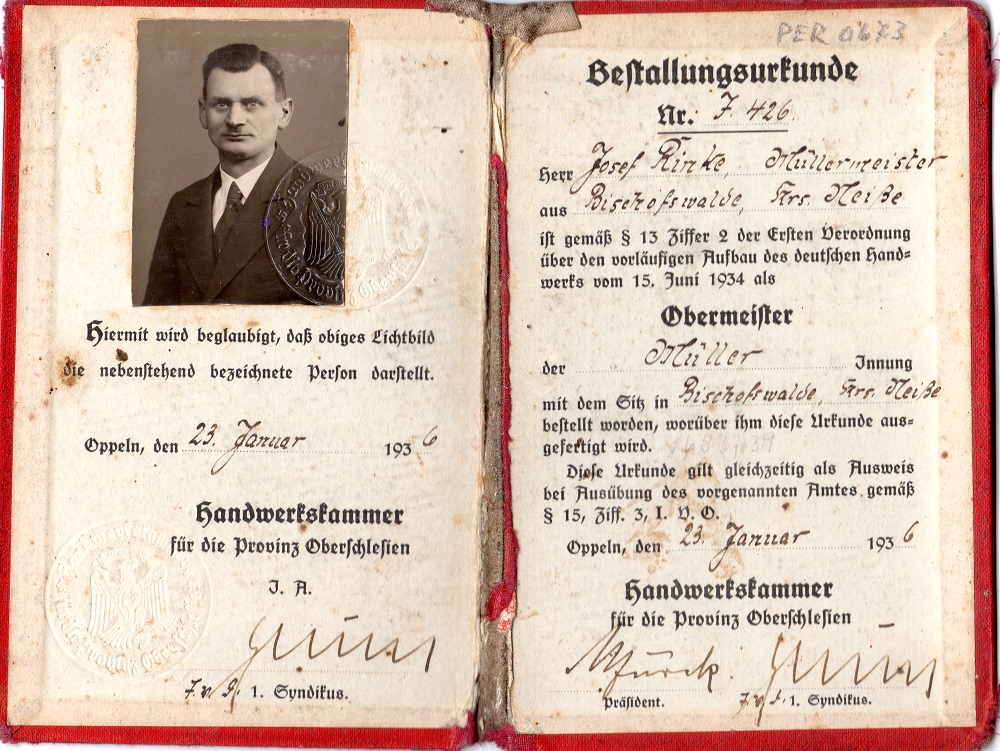 Hiermit wird beglaubigt, daß obiges Lichtbild
die nebenstehend bezeichnete Person darstellt.
Oppeln, den 23. Januar 1936
Handwerkskammer
für die Provinz Oberschlesien
J. A.
1. Syndikus.
PER 0673
Bestallungsurkunde
Nr. J. 426.
Herr Josef Rinke, Müllermeister
aus Bischofswalde, Krs. Neiße
ist gemäß § 13 Ziffer 2 der Ersten Verordnung
über den vorläufigen Aufbau des deutschen Hand-
werks vom 15. Juni 1934 als
Obermeister
der Müller Innung
mit dem Sitz in Bischofswalde, Krs. Neiße
bestellt worden, worüber ihm diese Urkunde aus-
gefertigt wird.
Diese Urkunde gilt gleichzeitig als Ausweis
bei Ausübung des vorgenannten Amtes gemäß
§ 15, Ziff. 3, I. V. O.
Oppeln, den 23. Januar 1936
Handwerkskammer
für die Provinz Oberschlesien
Präsident. 1. Syndikus.